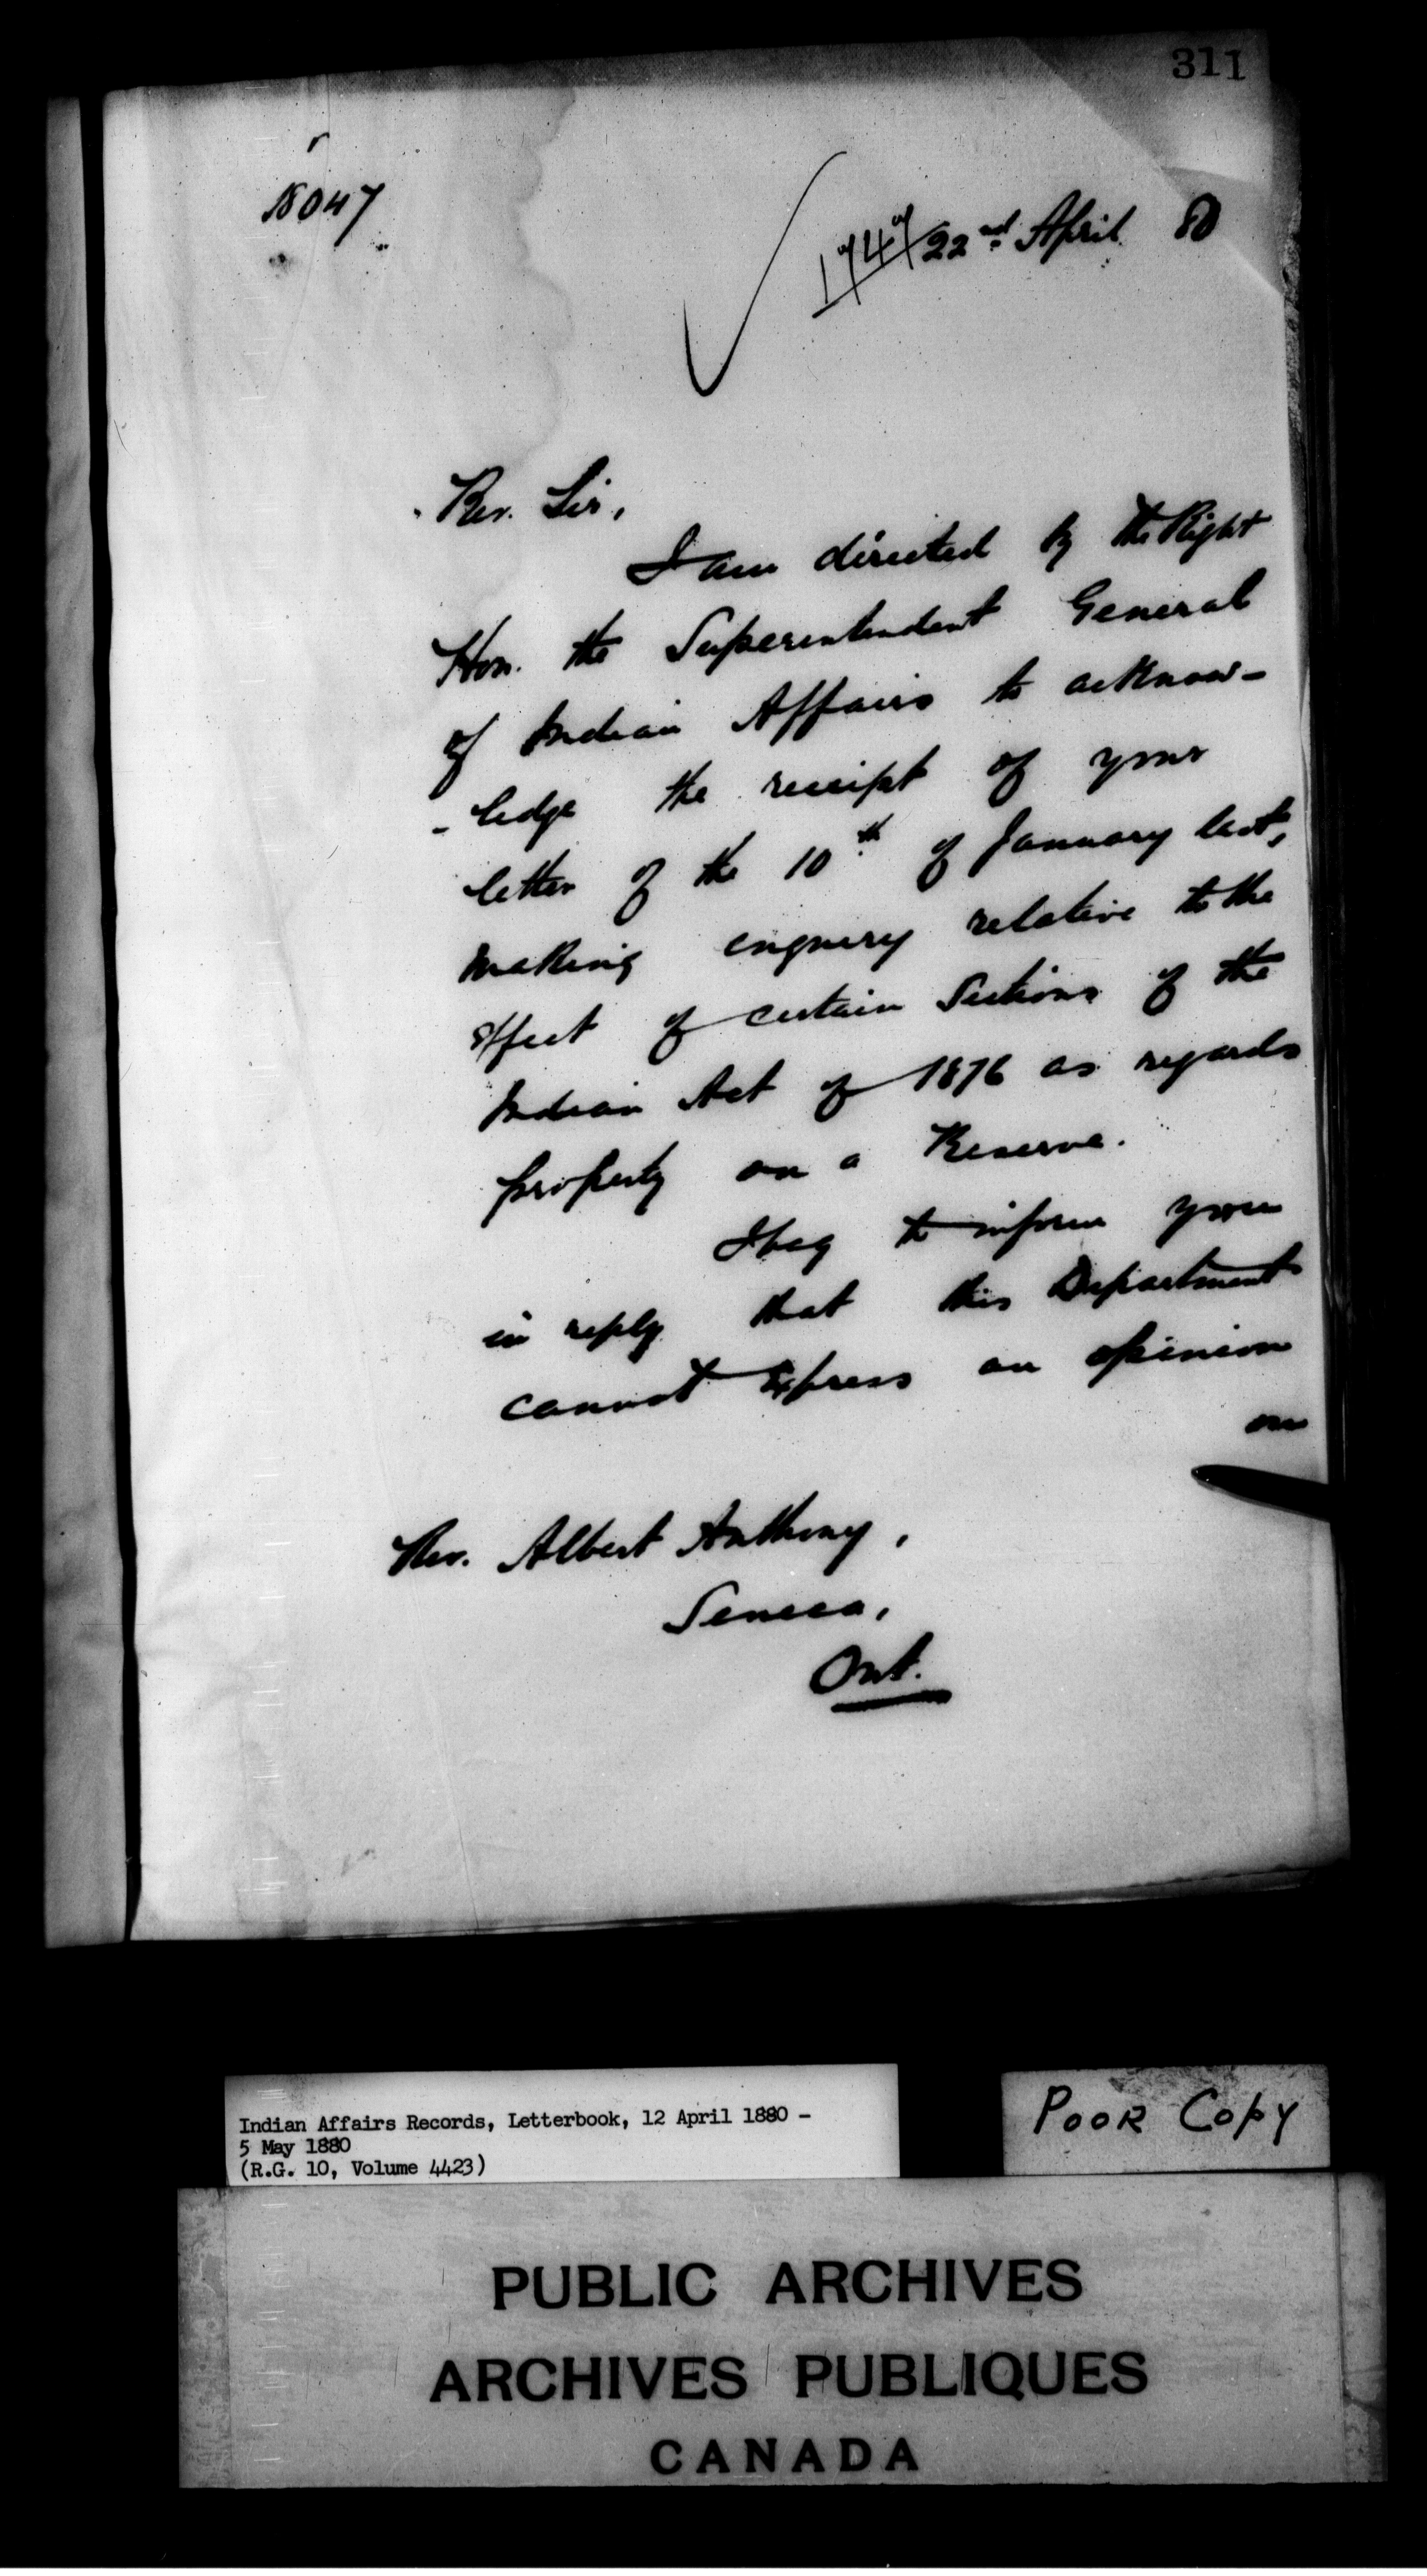 311
18047
22nd April 80
Rev. Sir,
I am directed by the Right
Hon. the Superintendent General
of Indian Affairs to acknow-
-ledge the receipt of your
letter of the 10th of January last,
making enquiry relative to the
effect of certain Sections of the
Indian Act of 1876 as regards
property on a Reserve.
I beg to inform you
in reply that this Department
cannot express an opinion
on
Rev. Albert Anthony,
Seneca,
Ont.
Indian Affairs Records, Letterbook, 12 April 1880 -
5 May 1880
(R.G. 10, Volume 4423)
POOR COPY
PUBLIC ARCHIVES
ARCHIVES PUBLIQUES
CANADA